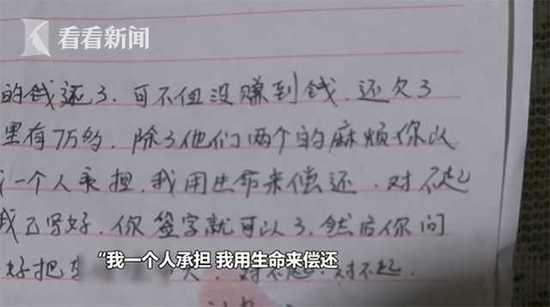 看看新闻
的钱还了.可不但没赚到钱.还欠了
里有7万约.除了他们两个的麻烦你以
一个人承担.我用生命来偿还.对不起
我已写好.你签字就可以了.然后你问
“我一个人承担 我用生命来偿还
好把 对不起.对不起.